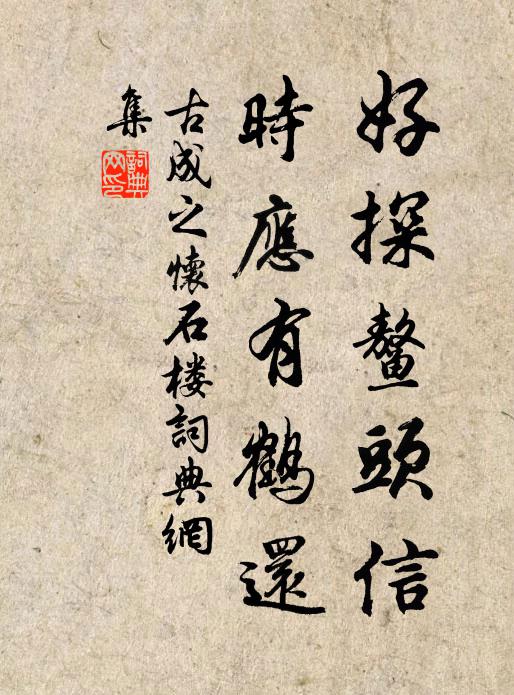 好探鼇頭信
時應有鶴還
古成之懷石樓詞典網
集
詞典網印